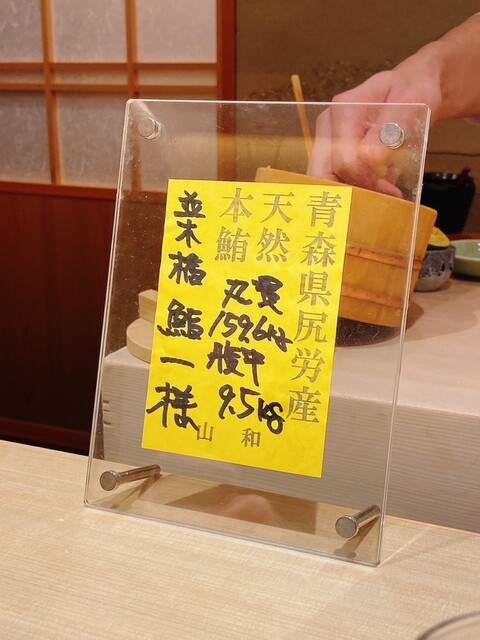 青森県尻労産
天然
本鮪
丸
159.6kg
腹中
9.5kg
並木橋 鮨一様
山和